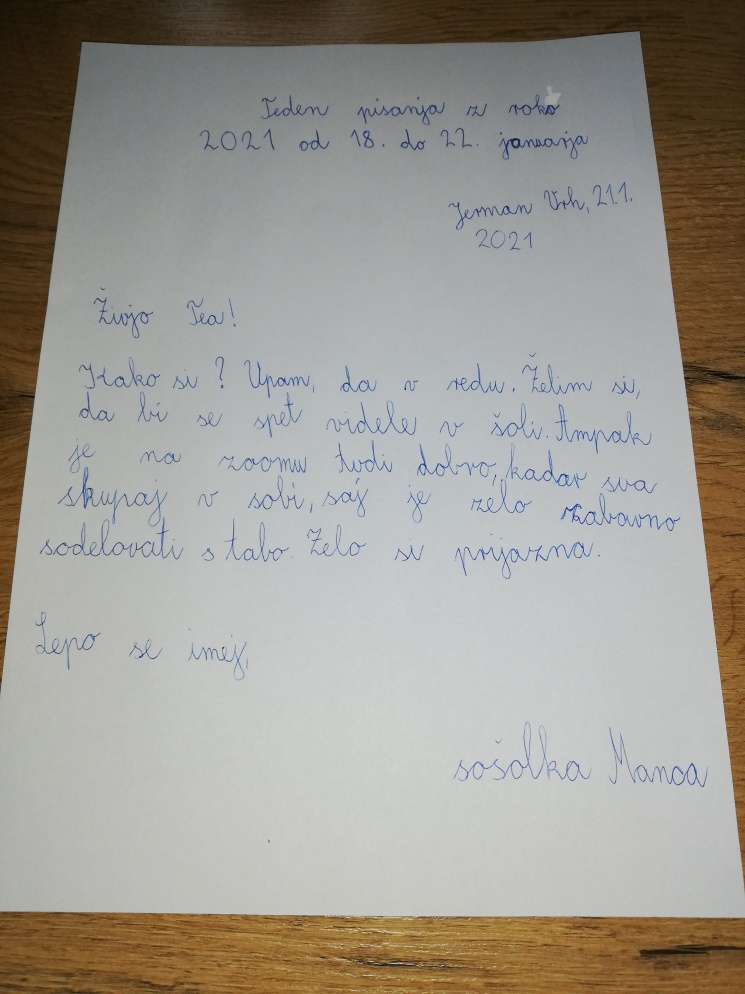 Teden pisanja z roko
2021 od 18. do 22. januarja
Jerman Vrh, 21.1.
2021
Živjo Tea!
Kako si? Upam, da v redu. Želim si,
da bi se spet videle v šoli. Ampak
je na zoomu tudi dobro, kadar sva
skupaj v sobi, saj je zelo zabavno
sodelovati s tabo. Zelo si prijazna.
Lepo se imej,
sošolka Manca